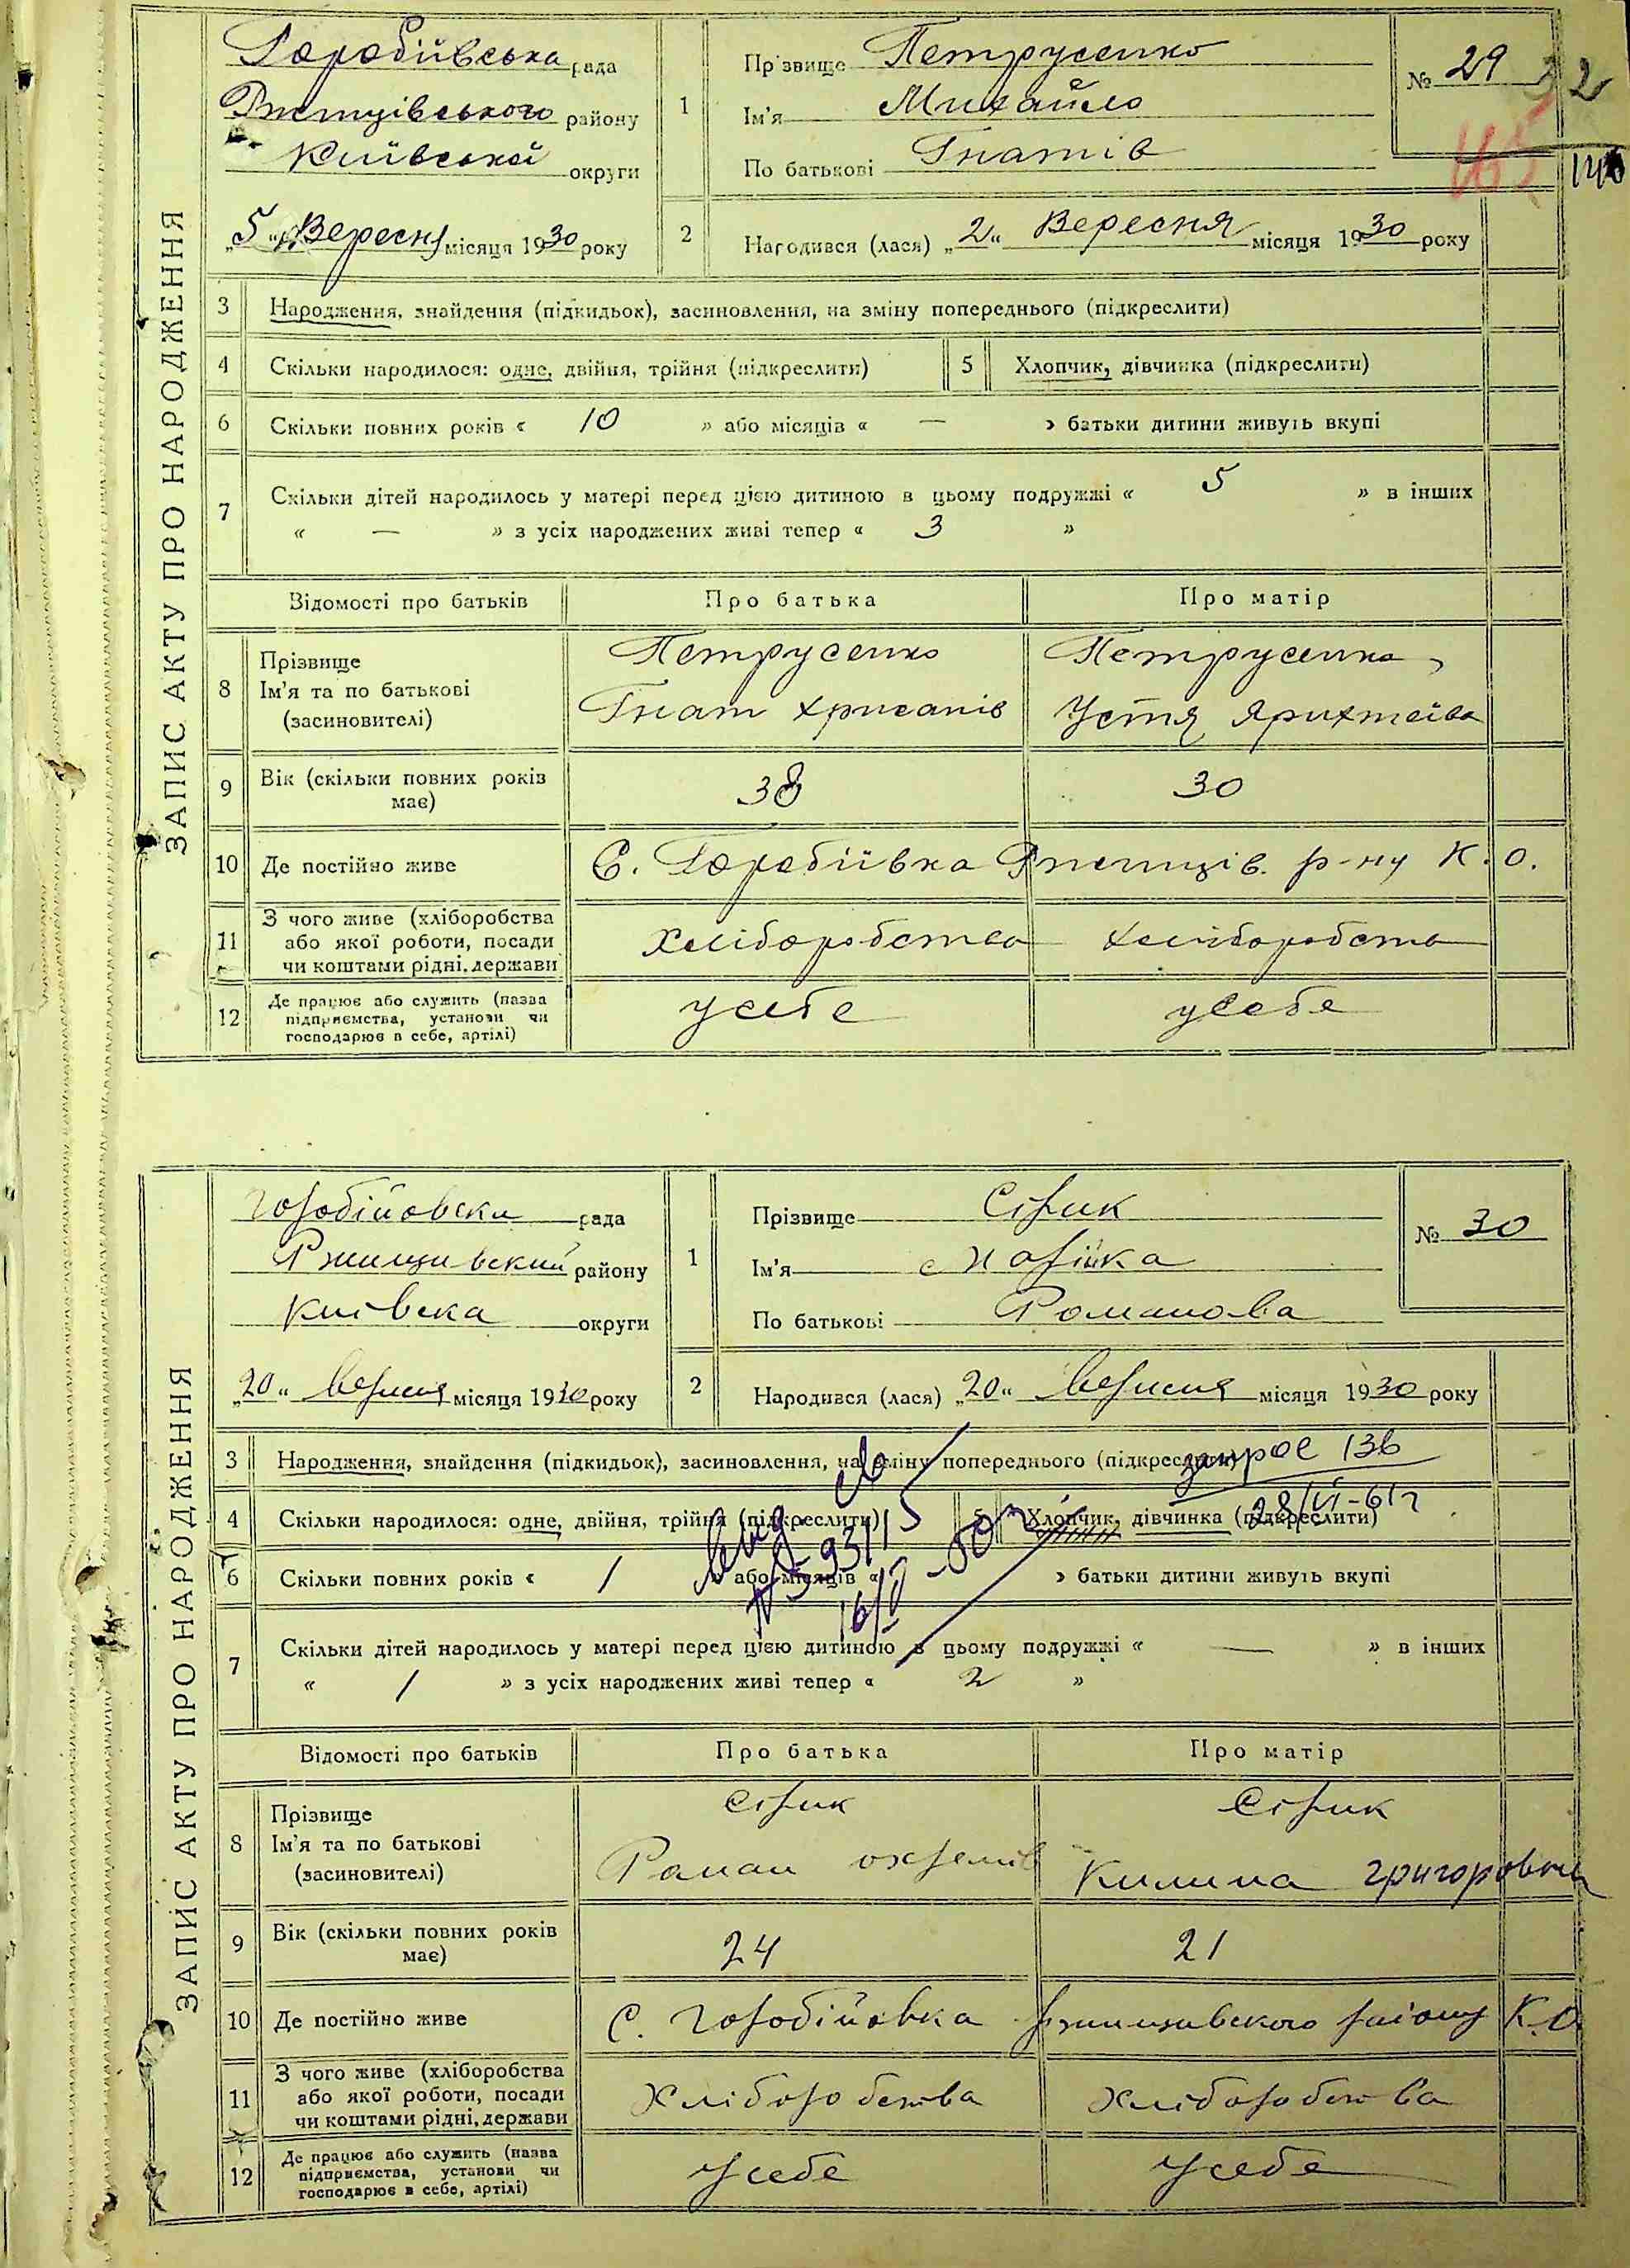 ЗАПИС АКТУ ПРО НАРОДЖЕННЯ
Горобіївська рада
Ржищівського району
Київської округи
„5" Вересня місяця 1930 року
1
Прізвище Петрусенко
Ім'я Михайло
По батькові Гнатів
№ 29
32
165
146
2
Народився (лася) „2" Вересня місяця 1930 року
3 Народження, знайдення (підкидьок), засиновлення, на зміну попереднього (підкреслити)
4 Скільки народилося: одне, двійня, трійня (підкреслити) 5 Хлопчик, дівчинка (підкреслити)
6 Скільки повних років « 10 » або місяців « — » батьки дитини живуть вкупі
7 Скільки дітей народилось у матері перед цією дитиною в цьому подружжі « 5 » в інших
« — » з усіх народжених живі тепер « 3 »
Відомості про батьків Про батька Про матір
8 Прізвище Ім'я та по батькові (засиновителі)
Петрусенко Петрусенко
Гнат Хрисанів Устя
9 Вік (скільки повних років має) 38 30
10 Де постійно живе С. Горобіївка Ржищів. р-ну К. О.
11 З чого живе (хліборобства або якої роботи, посади чи коштами рідні, держави Хліборобства Хліборобства
12 Де працює або служить (назва підприємства, установи чи господарює в себе, артілі) усебе усебе
ЗАПИС АКТУ ПРО НАРОДЖЕННЯ
Горобійовска рада
Ржищивский району
Киівска округи
„20" Вересня місяця 1930 року
1
Прізвище Сірик
Ім'я Марійка
По батькові Романова
№ 30
2
Народився (лася) „20" Вересня місяця 1930 року
3 Народження, знайдення (підкидьок), засиновлення, на зміну попереднього (підкреслити)
запрос 136
28/VI-61г
4 Скільки народилося: одне, двійня, трійня (підкреслити) 5 Хлопчик, дівчинка (підкреслити)
6 Скільки повних років « 1 » або місяців « » батьки дитини живуть вкупі
7 Скільки дітей народилось у матері перед цією дитиною в цьому подружжі « — » в інших
« 1 » з усіх народжених живі тепер « 2 »
Відомості про батьків Про батька Про матір
8 Прізвище Ім'я та по батькові (засиновителі)
Сірик Сірик
Роман охремів Килина григоровна
9 Вік (скільки повних років має) 24 21
10 Де постійно живе С. Горобійовка Ржищивского района К.О.
11 З чого живе (хліборобства або якої роботи, посади чи коштами рідні, держави Хліборобства Хліборобства
12 Де працює або служить (назва підприємства, установи чи господарює в себе, артілі) Усебе Усебе